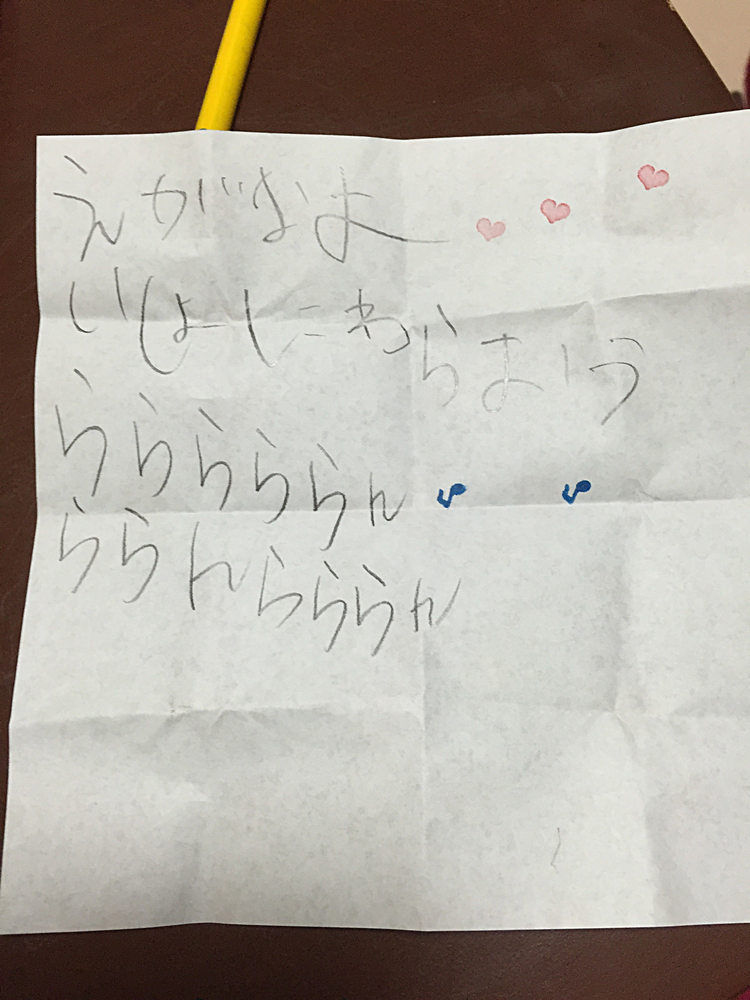 えがおよ
いしょーしにわらおう
らららららん
ららんらららん